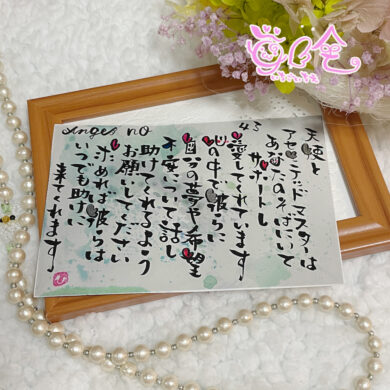 angel no 43
天使と
アセンデッドマスターは
あなたのそばにいて
サポートし
愛してくれています
心の中で彼らに
自分の夢や希望
不安について話し
助けてくれるよう
お願いしてください
求めれば彼らは
いつでも助けに
来てくれます